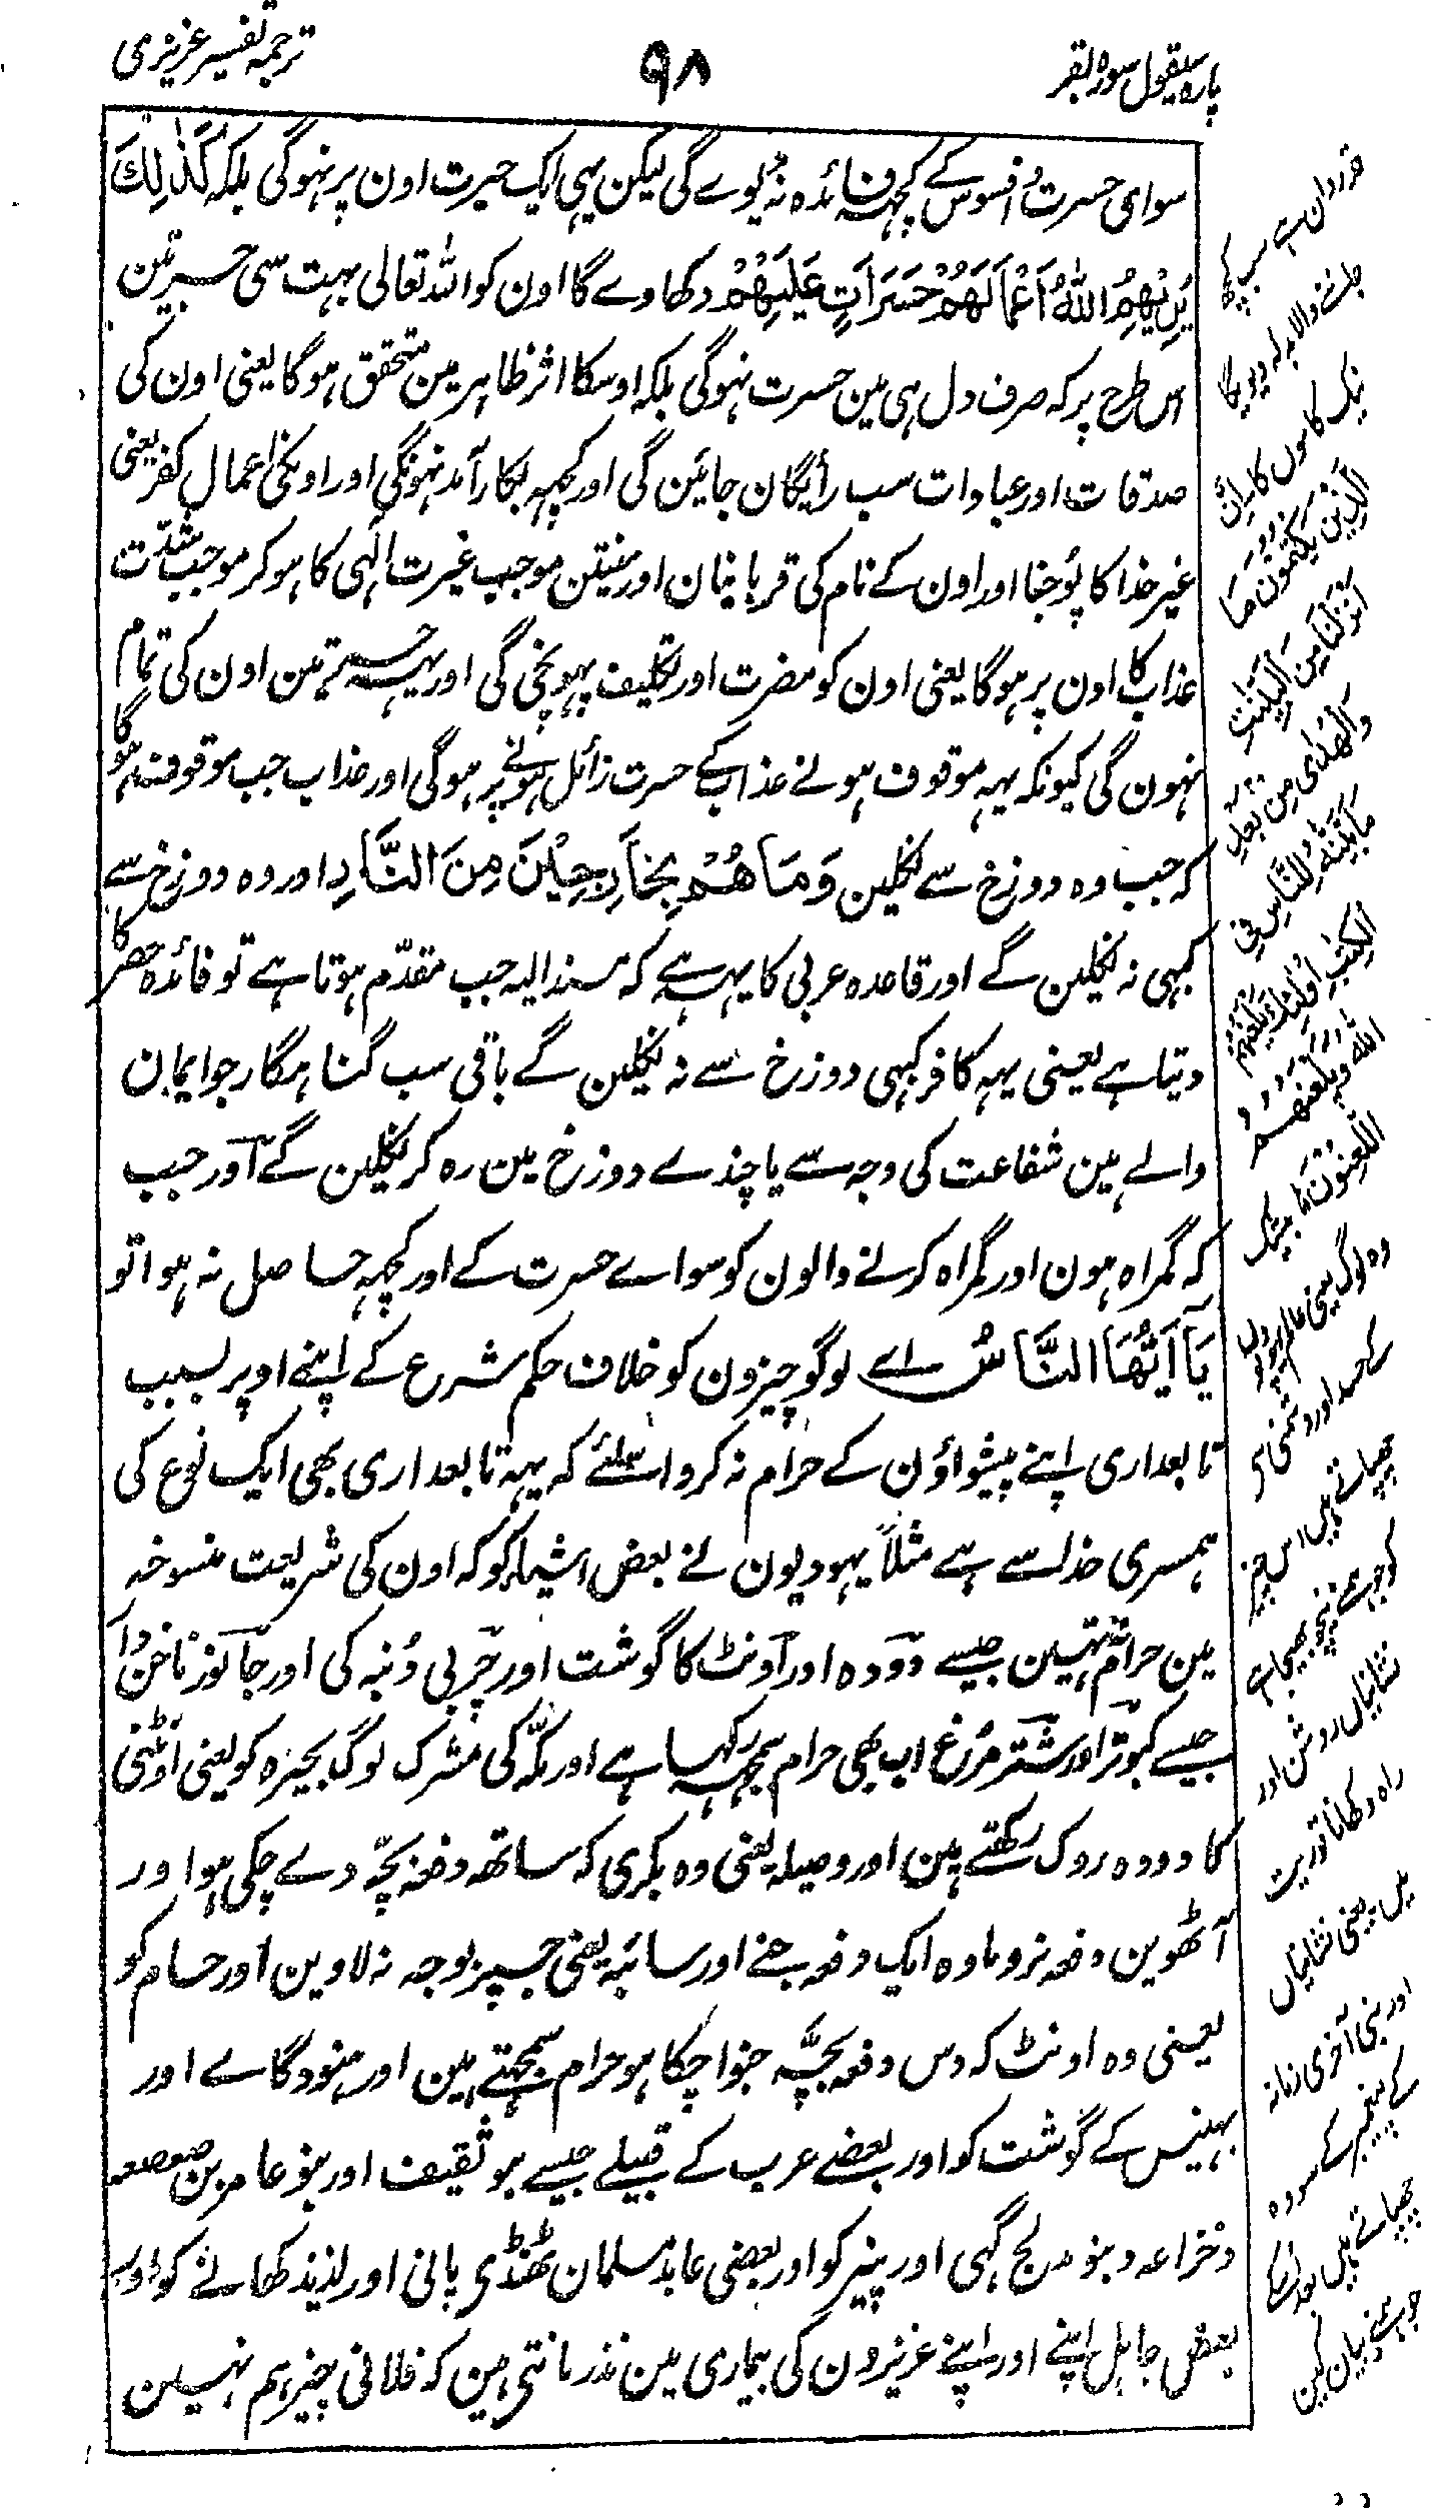 پارہ سیقول سورہ بقر
۹۸
ترجمہ تفسیر عزیزی
سوای حسرت و افسوس کے کچھہ فائدہ نہ لیوے گی لیکن یہی ایک حسرت اون پر نہوگی بلکہ کَذٰلِکَ
یُرِیْهِمُ اللّٰهُ اَعْمَالَهُمْ حَسَرَاتٍ عَلَیْهِمْ دکھاوے گا اون کو اللہ تعالی بہت سی حسرتین
اس طرح پر کہ صرف دل ہی مین حسرت نہوگی بلکہ اوسکا اثر ظاہر مین متحقق ہوگا یعنی اون کی
صدقات اور عبادات سب رائگان جائین گی اور کچھہ بکارآمد نہونگی اور اونکی اعمال کفر یعنی
غیر خدا کا پوجنا اور اون کے نام کی قربانیان اور منتین موجب غیرت الٰہی کا ہوکر موجب شدّت
عذاب کا اون پر ہوگا یعنی اون کو مضرت اور تکلیف پہونچی گی اور یہہ حسرتین اون کی تمام
نہون گی کیونکہ یہہ موقوف ہونے عذاب کے حسرت زائل ہونے پر ہوگی اور عذاب جب موقوف ہوگا
کہ جب وہ دوزخ سے نکلین وَمَا هُمْ بِخَارِجِیْنَ مِنَ النَّارِ اور وہ دوزخ سے
کبہی نہ نکلین گے اور قاعدہ عربی کا یہہ ہے کہ مسندالیہ جب مقدّم ہوتا ہے تو فائدہ حصر کا
دیتا ہے یعنی یہہ کافر کبہی دوزخ سے نہ نکلین گے باقی سب گناہگار جو ایمان
والے ہین شفاعت کی وجہ سے یا چندے دوزخ مین رہ کر نکلین گے اور جب
کہ گمراہ ہون اور گمراہ کرنے والون کو سوائے حسرت کے اور کچھہ حاصل نہ ہوا تو
یَا اَیُّهَا النَّاسُ اے لوگو چیزون کو خلاف حکم شرع کے اپنے اوپر بسبب
تابعداری اپنے پیشواؤن کے حرام نہ کرو اسلئے کہ یہہ تابعداری بھی ایک نوع کی
ہمسری خدا سے ہے مثلاً یہودیون نے بعض اشیاء کو کہ اون کی شریعت منسوخہ
مین حرام تہین جیسے دودہ اور اونٹ کا گوشت اور چربی دُنبہ کی اور جانور ناخن دار
جیسے کبوتر اور شتر مرغ اب بھی حرام سمجہہ رکہا ہے اور مکّہ کی مشرک لوگ بحیرہ کو یعنی اونٹنی
کا دودہ روک رکہتے ہین اور وصیلہ یعنی وہ بکری کہ ساتھہ دفعہ بچّہ دے چکی ہو اور
آٹھوین دفعہ نر و مادہ ایک دفعہ جنے اور سائبہ یعنی جسپر بوجہ نہ لادین اور حام کو
یعنی وہ اونٹ کہ دس دفعہ بچّہ جنوا چکا ہو حرام سمجہتے ہین اور ہنود گائے اور
بہینس کے گوشت کو اور بعضے عرب کے قبیلے جیسے بنو ثقیف اور بنو عامر بن صعصعہ
وخزاعہ و بنو مدلج گہی اور پنیر کو اور بعضی عابد مسلمان ٹھنڈی پانی اور لذیذ کھانے کو اور
بعض جاہل اپنے اور اپنے عزیزون کی بیماری مین نذر مانتی ہین کہ فلانی چیز ہم نہین
نیک کاموں کا
الَّذِیْنَ یَکْتُمُوْنَ مَا
اَنْزَلْنَا مِنَ الْبَیِّنٰتِ
وَالْهُدٰی مِنْ بَعْدِ
مَا بَیَّنّٰهُ لِلنَّاسِ فِی
الْکِتٰبِ اُولٰٓئِکَ یَلْعَنُهُمُ
اللّٰهُ وَیَلْعَنُهُمُ
اللّٰعِنُوْنَ بیشک
وہ لوگ یعنی
چھپاتے ہیں اس چیز
نشانیاں روشن اور
راہ دکھانا توریت
میں یعنی نشانیاں
اور نبی آخری زمانہ
کے پیغمبر کے سو وہ
چھپاتے ہیں بعد اسکے